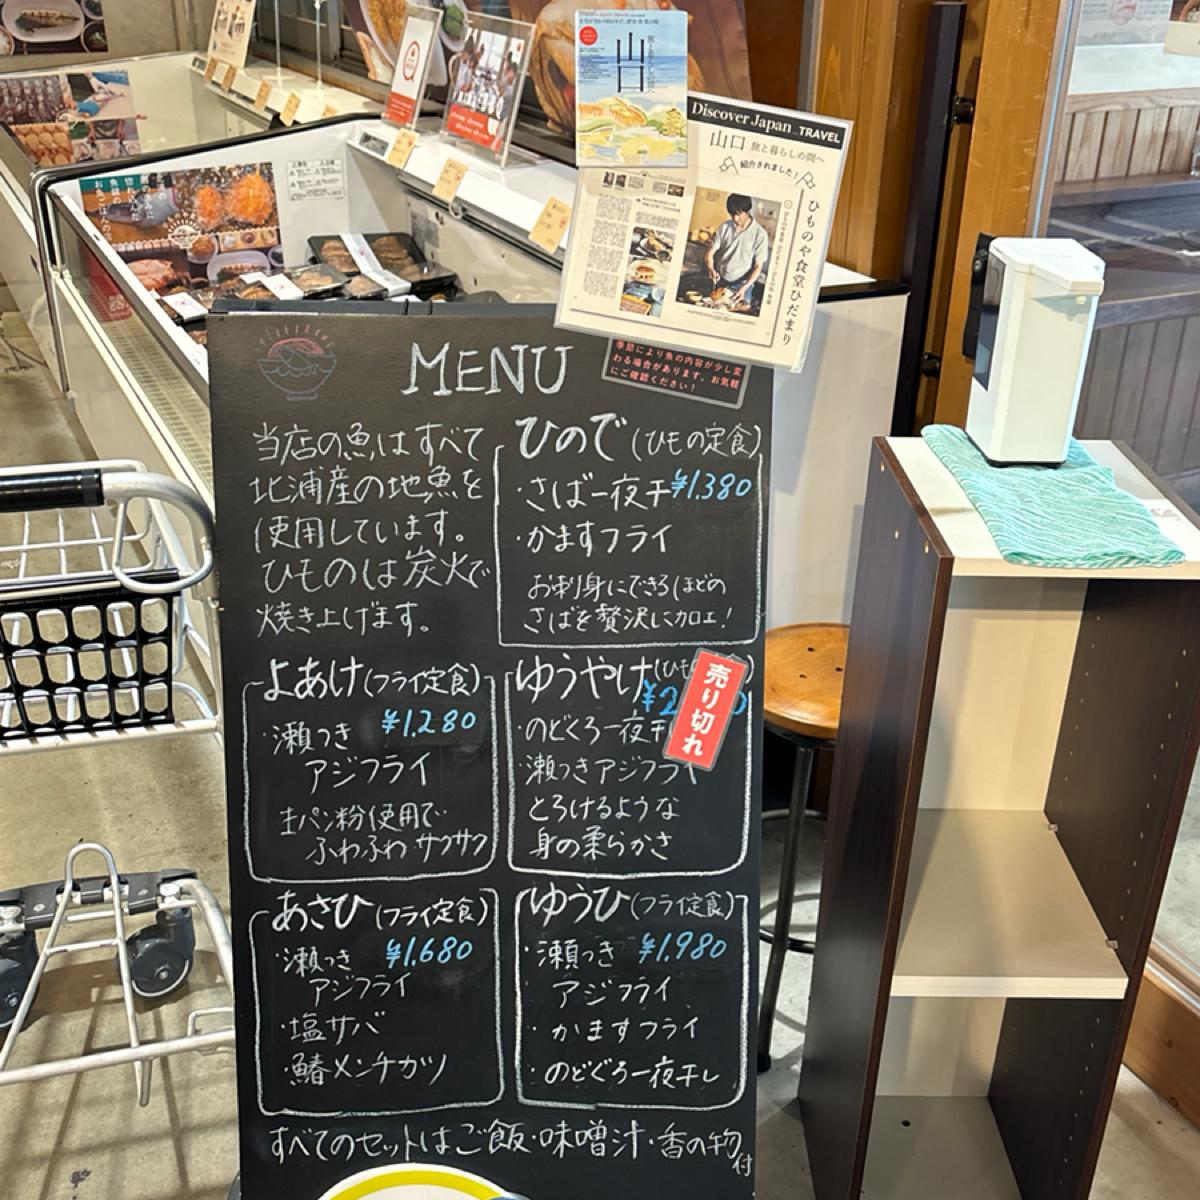 山口
Discover Japan_TRAVEL
山口 旅と暮らしの間へ
紹介されました!
ひものや食堂ひだまり
MENU
季節により魚の内容が少し変
わる場合があります。お気軽
にご確認ください!
当店の魚はすべて
北浦産の地魚を
使用しています。
ひものは炭火で
焼き上げます。
ひので(ひもの定食)
・さば一夜干 ¥1.380
・かますフライ
お刺身にできるほどの
さばを贅沢に加工!
よあけ(フライ定食)
・瀬つき ¥1.280
アジフライ
生パン粉使用で
ふわふわ サクサク
ゆうやけ
売り切れ
・のどぐろ一夜干
・瀬つきアジフライ
とろけるような
身の柔らかさ
あさひ(フライ定食)
・瀬つき ¥1.680
アジフライ
・塩サバ
・鰆メンチカツ
ゆうひ(フライ定食)
・瀬つき ¥1.980
アジフライ
・かますフライ
・のどぐろ一夜干し
すべてのセットはご飯・味噌汁・香の物付